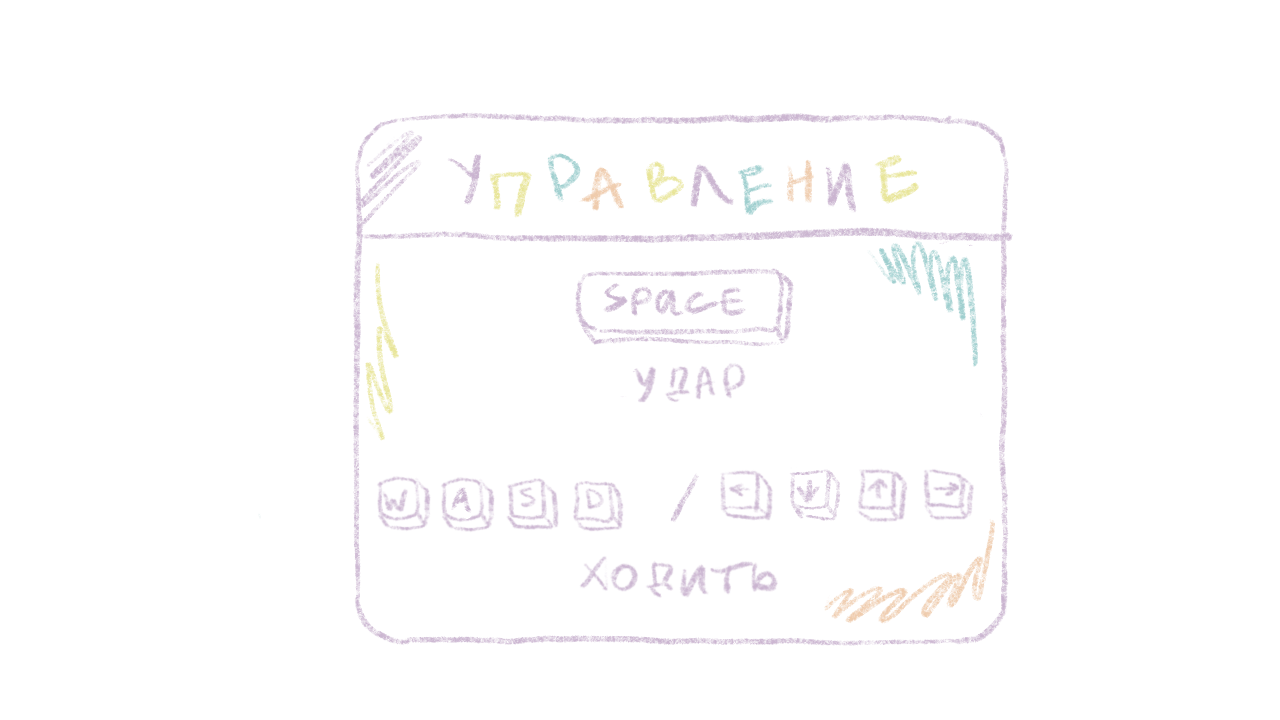 УПРАВЛЕНИЕ
SPACE
УДАР
W A S D / ← ↓ ↑ →
ХОДИТЬ